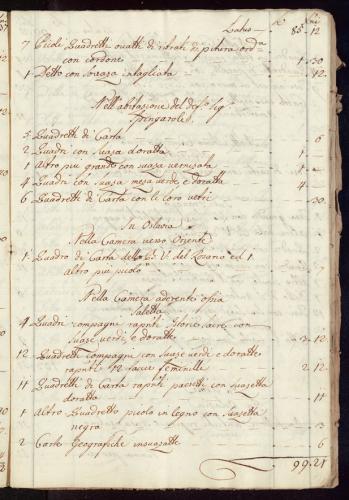 Latus — 85 12
7 Picoli Quadretti ovatti di ritratti di pitura ord.a
con cordone — 1 30
1 Detto con soaza intagliata — 12
Nell'abitazione del def.to Sig.r
5 Quadretti di Carta — 6
2 Quadri con Suaza doratta — 1 —
1 Altro piu grande con suaza vernisata — 1 —
4 Quadri con suaza meza verde, e doratta — 4 —
6 Quadretti di Carta con le loro vetri — 30
In Oslavia
Nella Camera verso Oriente
1 Quadro di Carta della B. V. del Rosario ed 1
altro piu picolo
Nella Camera aderente ossia
Saletta
4 Quadri compagni rapnti Istorie sacre con
suaze verdi, e doratte — 3 12
12 Quadretti compagni con suaze verdi e doratte
rapnti 12 faccie feminille — 2 12
11 Quadretti di Carta rapnti paesetti con suazetta
doratta — 11
1 Altro Quadretto picolo in legno con suazetta
negra — 3
2 Carte Geografiche insuazatte — 6
99 21